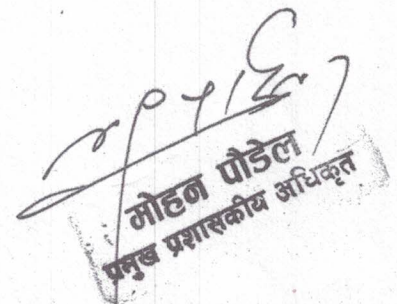 मोहन पौडेल
प्रमुख प्रशासकीय अधिकृत